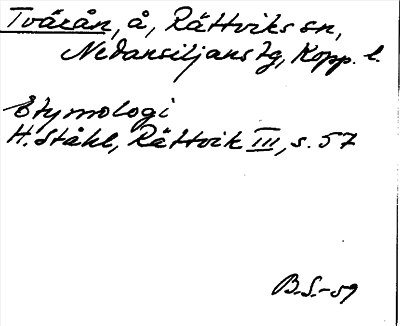 Tvärån, å, Rättviks sn,
Nedansiljans tg, Kopp. l.
Etymologi
H. Ståhl, Rättvik III, s. 57
B.S.-59